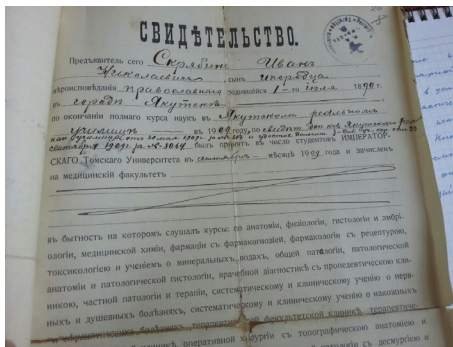 СВИДѢТЕЛЬСТВО.
Предъявитель сего Скрябинъ Иванъ
Николаевичъ, сынъ инородца
вѣроисповѣданія православнаго родившійся 1-го іюля 1890 г.
въ городѣ Якутскѣ
по окончаніи полнаго курса наукъ въ Якутскомъ реальномъ
училищѣ въ 1909 году, по
сентября 1909 г. за № 5064 былъ принятъ въ число студентовъ ИМПЕРАТОР-
СКАГО Томскаго Университета въ сентябрѣ мѣсяцѣ 1909 года и зачисленъ
на медицинскій факультетъ
въ бытность на которомъ слушалъ курсы: по анатоміи, физіологіи, гистологіи и эмбрі-
ологіи, медицинской химіи, фармаціи съ фармакогнозіей, фармакологіи съ рецептурою,
токсикологіею и ученіемъ о минеральныхъ водахъ, общей патологіи, патологической
анатоміи и патологической гистологіи, врачебной діагностикѣ съ пропедевтическою кли-
никою, частной патологіи и терапіи, систематическому и клиническому ученію о нерв-
ныхъ и душевныхъ болѣзняхъ, систематическому и клиническому ученію о накожныхъ
болѣзняхъ, факультетской клиникѣ, терапевтиче-
клиникѣ, оперативной хирургіи съ топографическою анатоміею и
съ десмургіею и